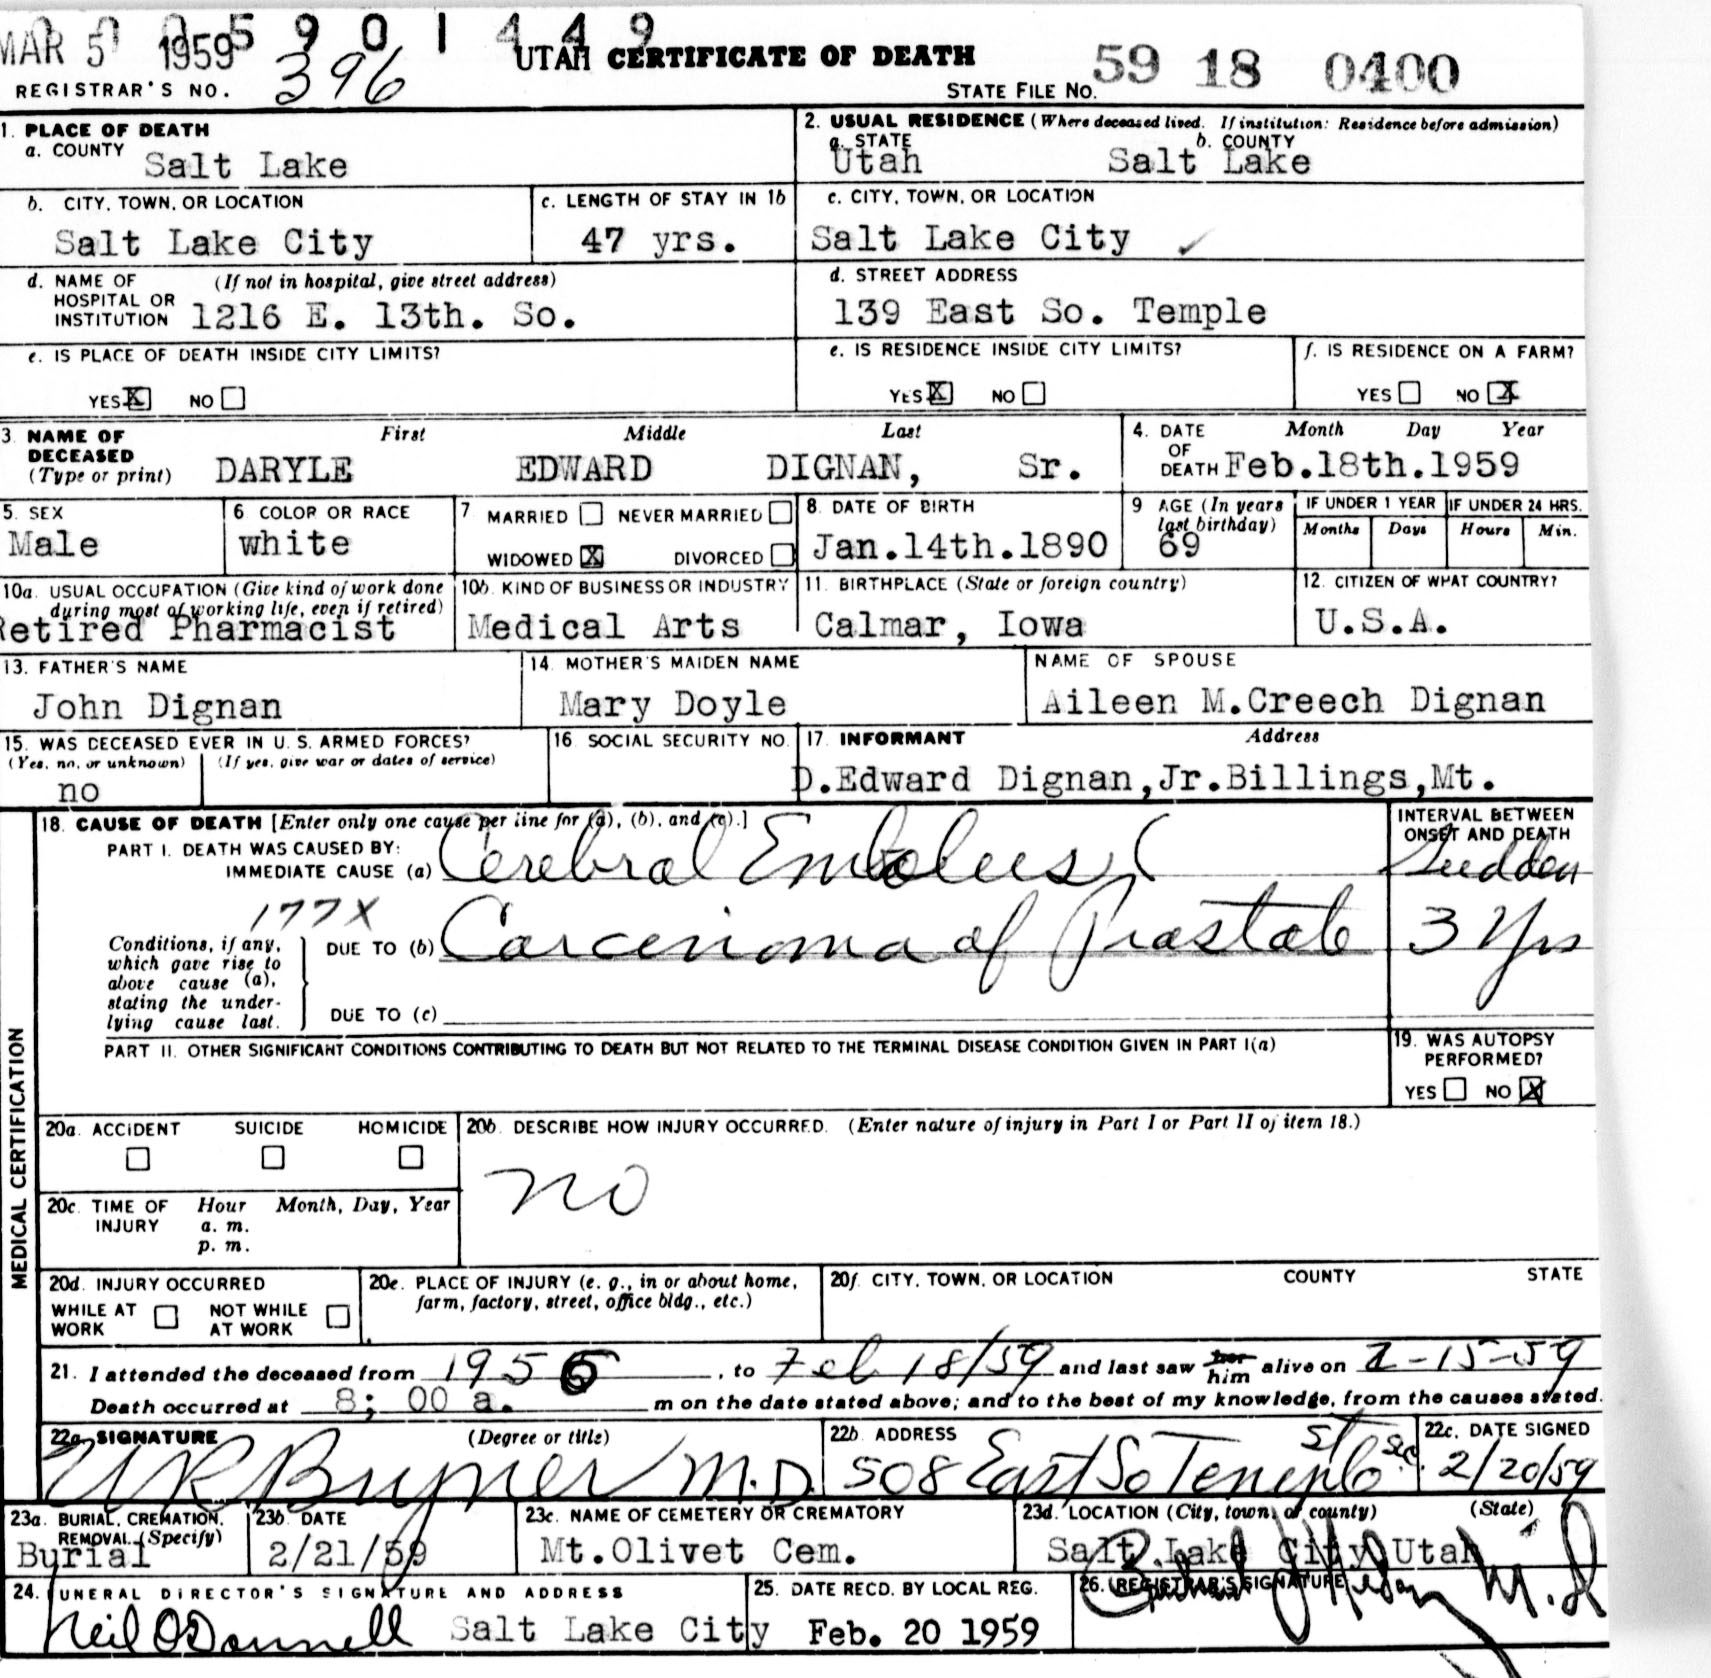 MAR 5 1959 5 9 0 1 4 4 9
REGISTRAR'S NO. 396
UTAH CERTIFICATE OF DEATH
STATE FILE NO. 59 18 0400
1. PLACE OF DEATH
a. COUNTY Salt Lake
2. USUAL RESIDENCE (Where deceased lived. If institution: Residence before admission)
a. STATE Utah b. COUNTY Salt Lake
b. CITY, TOWN, OR LOCATION Salt Lake City
c. LENGTH OF STAY IN 1b 47 yrs.
c. CITY, TOWN, OR LOCATION Salt Lake City
d. NAME OF HOSPITAL OR INSTITUTION (If not in hospital, give street address) 1216 E. 13th. So.
d. STREET ADDRESS 139 East So. Temple
e. IS PLACE OF DEATH INSIDE CITY LIMITS? YES X NO
e. IS RESIDENCE INSIDE CITY LIMITS? YES X NO
f. IS RESIDENCE ON A FARM? YES NO X
3. NAME OF DECEASED (Type or print) First Middle Last
DARYLE EDWARD DIGNAN, Sr.
4. DATE OF DEATH Month Day Year
Feb.18th.1959
5. SEX Male
6 COLOR OR RACE white
7 MARRIED NEVER MARRIED WIDOWED X DIVORCED
8. DATE OF BIRTH Jan.14th.1890
9 AGE (In years last birthday) 69
IF UNDER 1 YEAR Months Days
IF UNDER 24 HRS. Hours Min.
10a. USUAL OCCUPATION (Give kind of work done during most of working life, even if retired)
Retired Pharmacist
10b. KIND OF BUSINESS OR INDUSTRY Medical Arts
11. BIRTHPLACE (State or foreign country) Calmar, Iowa
12. CITIZEN OF WHAT COUNTRY? U.S.A.
13. FATHER'S NAME John Dignan
14. MOTHER'S MAIDEN NAME Mary Doyle
NAME OF SPOUSE Aileen M.Creech Dignan
15. WAS DECEASED EVER IN U. S. ARMED FORCES?
(Yes, no, or unknown) (If yes, give war or dates of service)
no
16. SOCIAL SECURITY NO.
17. INFORMANT Address
D.Edward Dignan,Jr.Billings,Mt.
MEDICAL CERTIFICATION
18. CAUSE OF DEATH [Enter only one cause per line for (a), (b), and (c).]
INTERVAL BETWEEN ONSET AND DEATH
PART I. DEATH WAS CAUSED BY:
IMMEDIATE CAUSE (a) Cerebral Embolus Sudden
177X
Conditions, if any, which gave rise to above cause (a), stating the underlying cause last.
DUE TO (b) Carcenoma of Prostate 3 Yrs
DUE TO (c)
PART II. OTHER SIGNIFICANT CONDITIONS CONTRIBUTING TO DEATH BUT NOT RELATED TO THE TERMINAL DISEASE CONDITION GIVEN IN PART I(a)
19. WAS AUTOPSY PERFORMED? YES NO X
20a. ACCIDENT SUICIDE HOMICIDE
20b. DESCRIBE HOW INJURY OCCURRED. (Enter nature of injury in Part I or Part II of item 18.)
no
20c. TIME OF INJURY Hour a. m. p. m. Month, Day, Year
20d. INJURY OCCURRED
WHILE AT WORK NOT WHILE AT WORK
20e. PLACE OF INJURY (e. g., in or about home, farm, factory, street, office bldg., etc.)
20f. CITY, TOWN, OR LOCATION COUNTY STATE
21. I attended the deceased from 1956, to Feb 18/59 and last saw her him alive on 2-15-59
Death occurred at 8; 00 a. m on the date stated above; and to the best of my knowledge, from the causes stated.
22a. SIGNATURE (Degree or title) M.D.
22b. ADDRESS 508 East So Temple St
22c. DATE SIGNED 2/20/59
23a. BURIAL, CREMATION, REMOVAL (Specify) Burial
23b. DATE 2/21/59
23c. NAME OF CEMETERY OR CREMATORY Mt.Olivet Cem.
23d. LOCATION (City, town, or county) (State) Salt Lake City Utah
24. FUNERAL DIRECTOR'S SIGNATURE AND ADDRESS
Neil O'Donnell Salt Lake City
25. DATE RECD. BY LOCAL REG. Feb. 20 1959
26. REGISTRAR'S SIGNATURE M.D